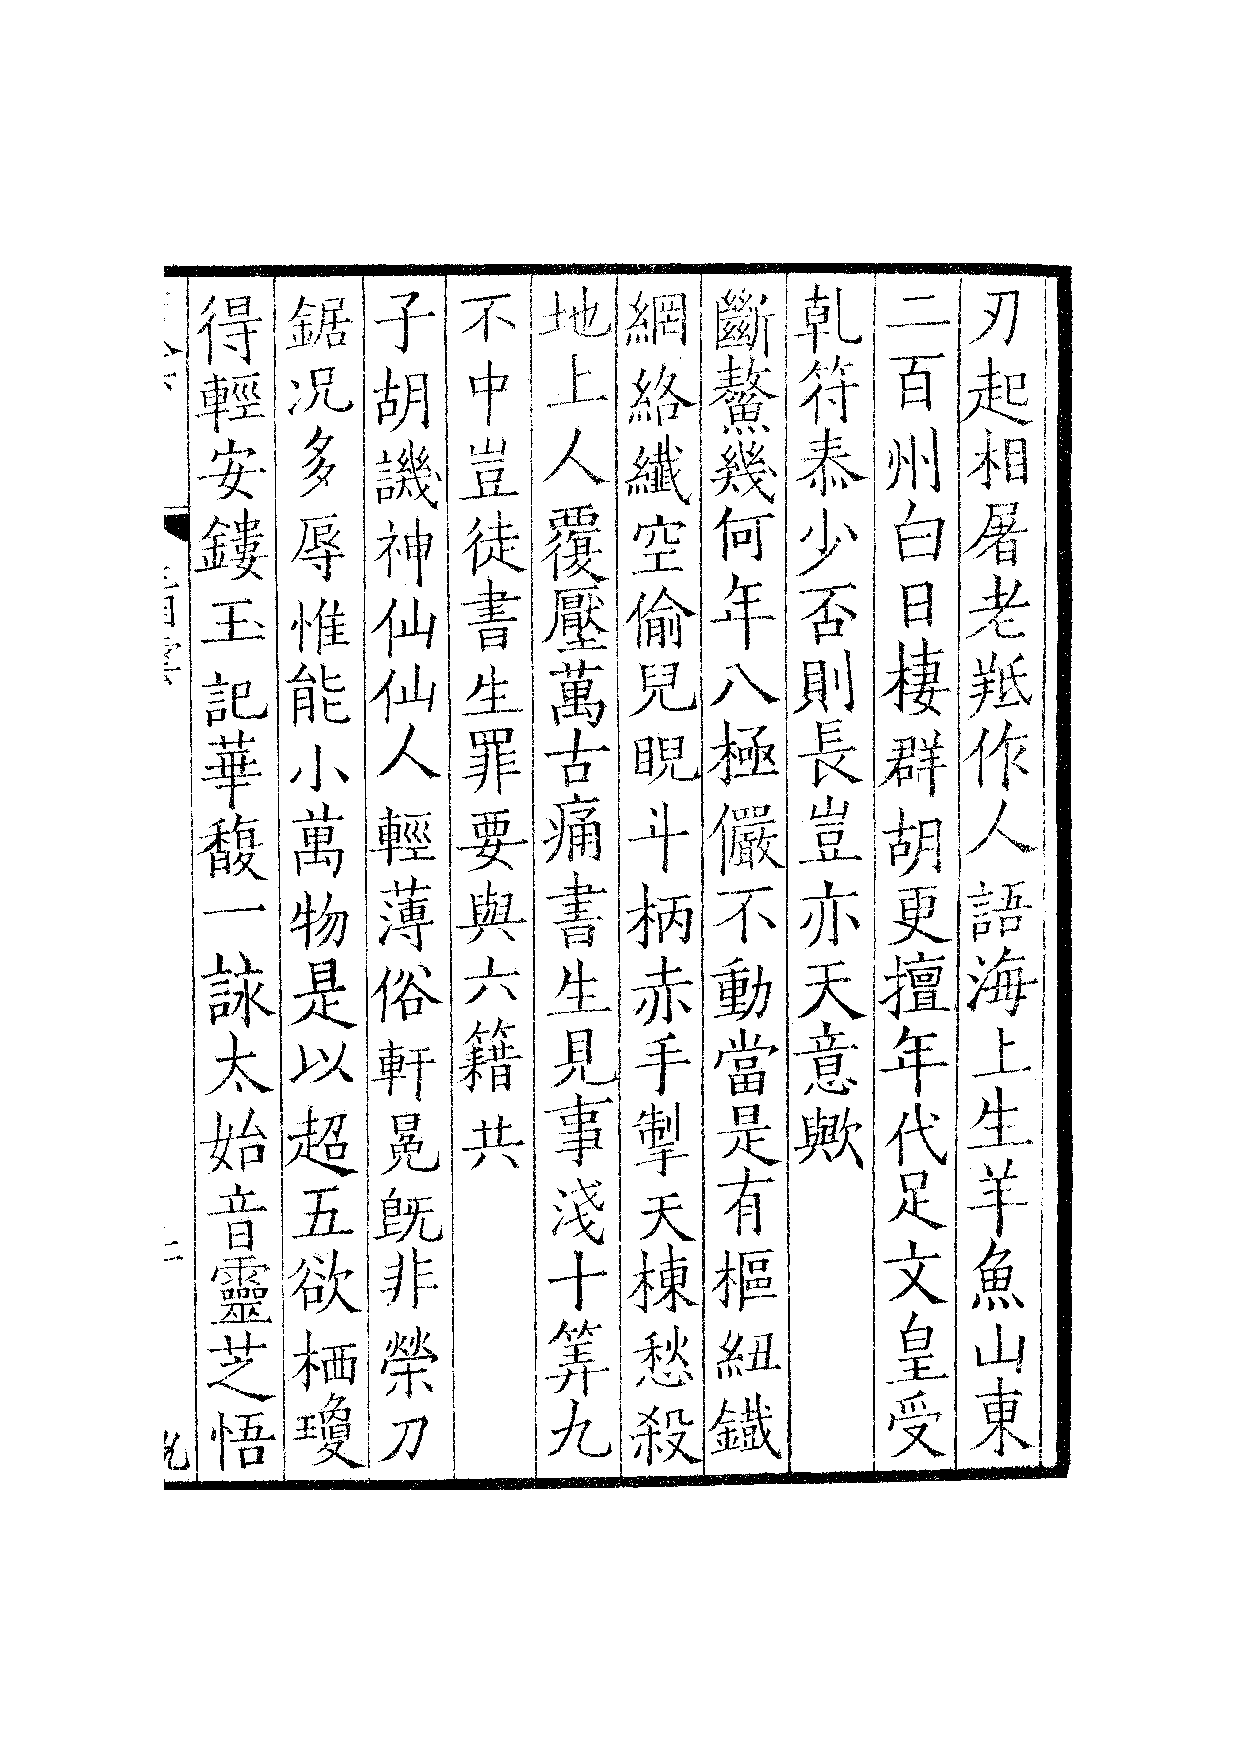 刃起相屠老羝作人語海上生羊魚山東
二百州白日棲群胡更擅年代足文皇受
乹符泰少否則長豈亦天意歟
斷鰲幾何年八極儼不動當是有樞紐鐵
網絡纖空偷兒睨斗柄赤手掣天棟愁殺
地上人覆壓萬古痛書生見事淺十筭九
不中豈徒書生罪要與六籍共
子胡譏神仙仙人輕薄俗軒冕旣非榮刀
鋸况多辱惟能小萬物是以超五欲栖瓊
得輕安鏤玉記華馥一詠太始音靈芝悟